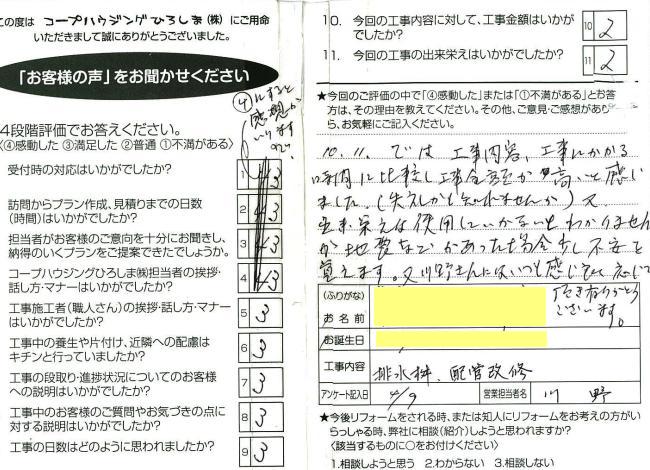 この度は コープハウジングひろしま(株) にご用命
いただきまして誠にありがとうございました。
「お客様の声」をお聞かせください
④にすると
感想が
いります
ので。
4段階評価でお答えください。
〈④感動した ③満足した ②普通 ①不満がある〉
受付時の対応はいかがでしたか?
1 4 3
訪問からプラン作成、見積りまでの日数
(時間)はいかがでしたか?
2 4 3
担当者がお客様のご意向を十分にお聞きし、
納得のいくプランをご提案できたでしょうか。
3 4 3
コープハウジングひろしま㈱担当者の挨拶・
話し方・マナーはいかがでしたか?
4 4 3
工事施工者(職人さん)の挨拶・話し方・マナー
はいかがでしたか?
5 3
工事中の養生や片付け、近隣への配慮は
キチンと行っていましたか?
6 3
工事の段取り・進捗状況についてのお客様
への説明はいかがでしたか?
7 3
工事中のお客様のご質問やお気づきの点に
対する説明はいかがでしたか?
8 3
工事の日数はどのように思われましたか?
9 3
10. 今回の工事内容に対して、工事金額はいかが
でしたか?
10 2
11. 今回の工事の出来栄えはいかがでしたか?
11 2
★今回のご評価の中で「④感動した」または「①不満がある」とお答
方は、その理由を教えてください。その他、ご意見・ご感想があり
ら、お気軽にご記入ください。
10. 11. では 工事内容、工事にかかる
時間に比較し工事金額が高いと感じ
ました。(失礼かも知れませんが) 又
出来栄えは使用していかないとわかりません
が地震などがあった場合少し不安を
覚えます。又川野さんにはいつも感じよく応じて
頂き有りがとう
ございます。
(ふりがな)
お名前
お誕生日
工事内容
排水桝、配管改修
アンケート記入日
4/9
営業担当者名
川 野
★今後リフォームをされる時、または知人にリフォームをお考えの方がい
らっしゃる時、弊社に相談(紹介)しようと思われますか?
〈該当するものに○をお付けください〉
1.相談しようと思う 2.わからない 3.相談しない